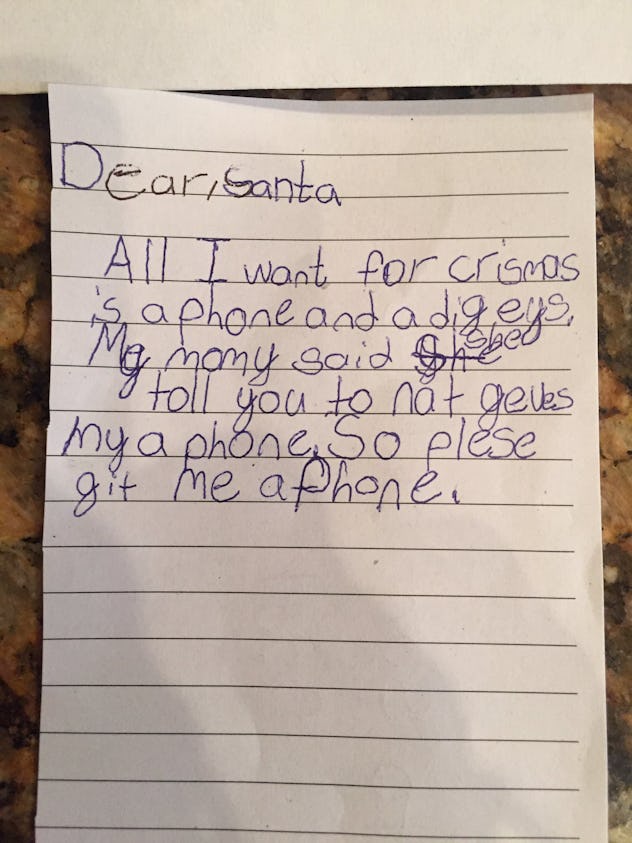 Dear, Santa
All I want for crismas
is a phone and a dig eys.
My momy said She shed
toll you to nat geves
my a phone. So plese
git me a Phone.